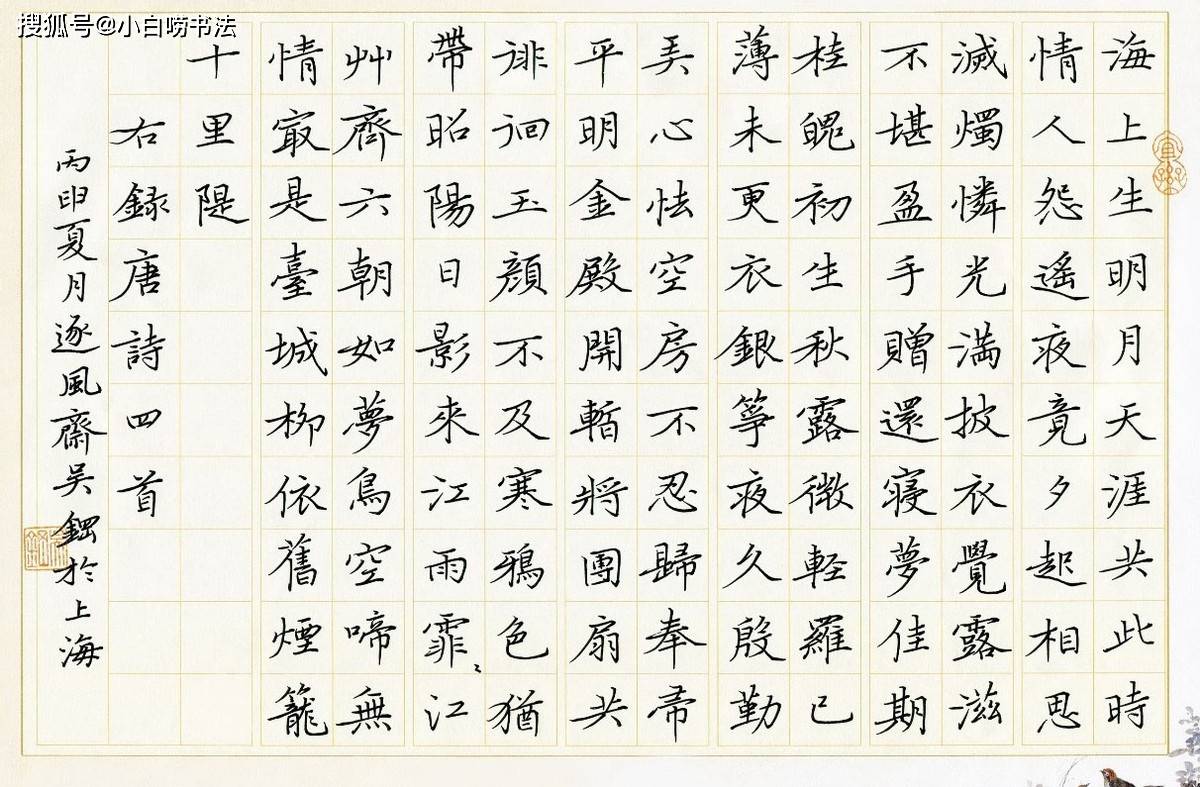 搜狐号@小白唠书法
海上生明月天涯共此時
情人怨遙夜竟夕起相思
滅燭憐光滿披衣覺露滋
不堪盈手贈還寢夢佳期
桂魄初生秋露微輕羅已
薄未更衣銀箏夜久殷勤
弄心怯空房不忍歸奉帚
平明金殿開暫將團扇共
徘徊玉顏不及寒鴉色猶
帶昭陽日影來江雨霏〻江
艸齊六朝如夢鳥空啼無
情㝡是臺城柳依舊煙籠
十里隄
右録唐詩四首
丙申夏月逐風齋吳鋼於上海